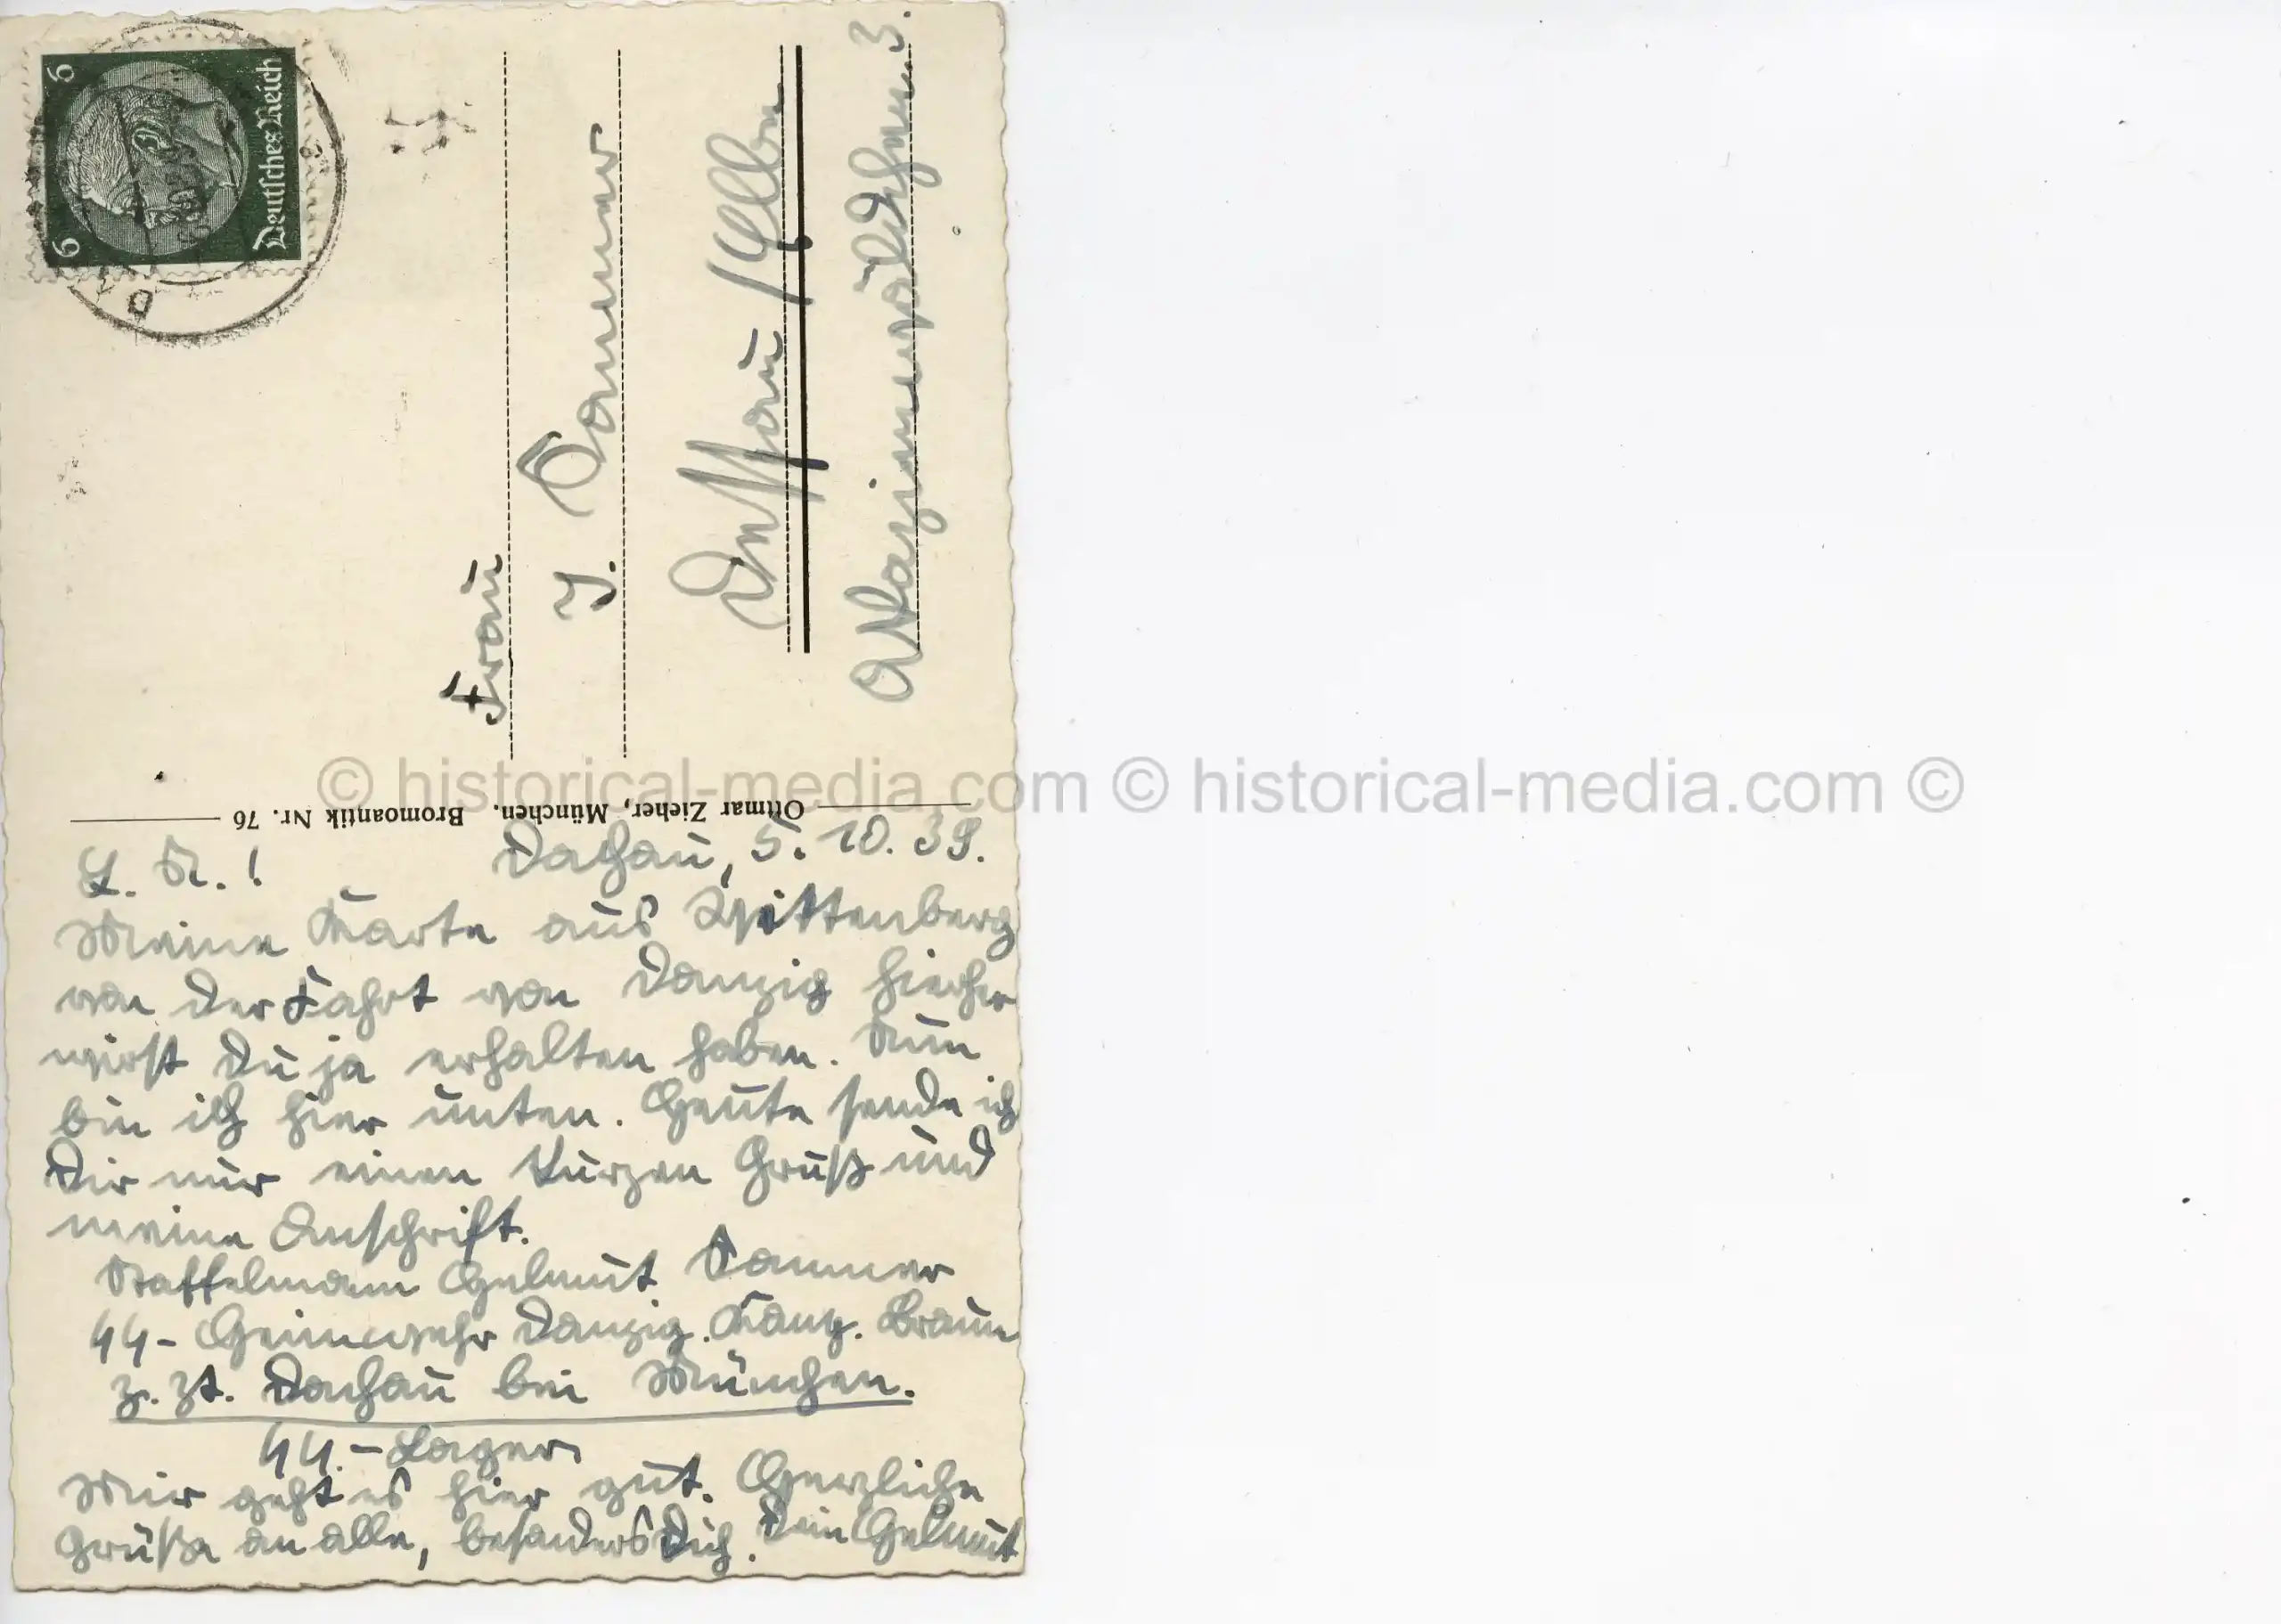 6 6
Deutsches Reich
Frau
J. Dammer
Dessau / Elbe
Akazienwäldchen 3.
© historical-media.com © historical-media.com ©
Ottmar Zieher, München. Bromoantik Nr. 76
Dachau, 5. 10. 39.
L. R.!
Meine Karte aus Wittenberg
von der Fahrt von Danzig hierher
wirst Du ja erhalten haben. Nun
bin ich hier unten. Heute sende ich
Dir nur einen kurzen Gruß und
meine Anschrift.
Staffelmann Helmut Dammer
SS- Heimwehr Danzig. Braun
z. Zt. Dachau bei München.
SS.-Lager
Mir geht es hier gut. Herzliche
Grüße an alle, besonders Dich. Dein Helmut